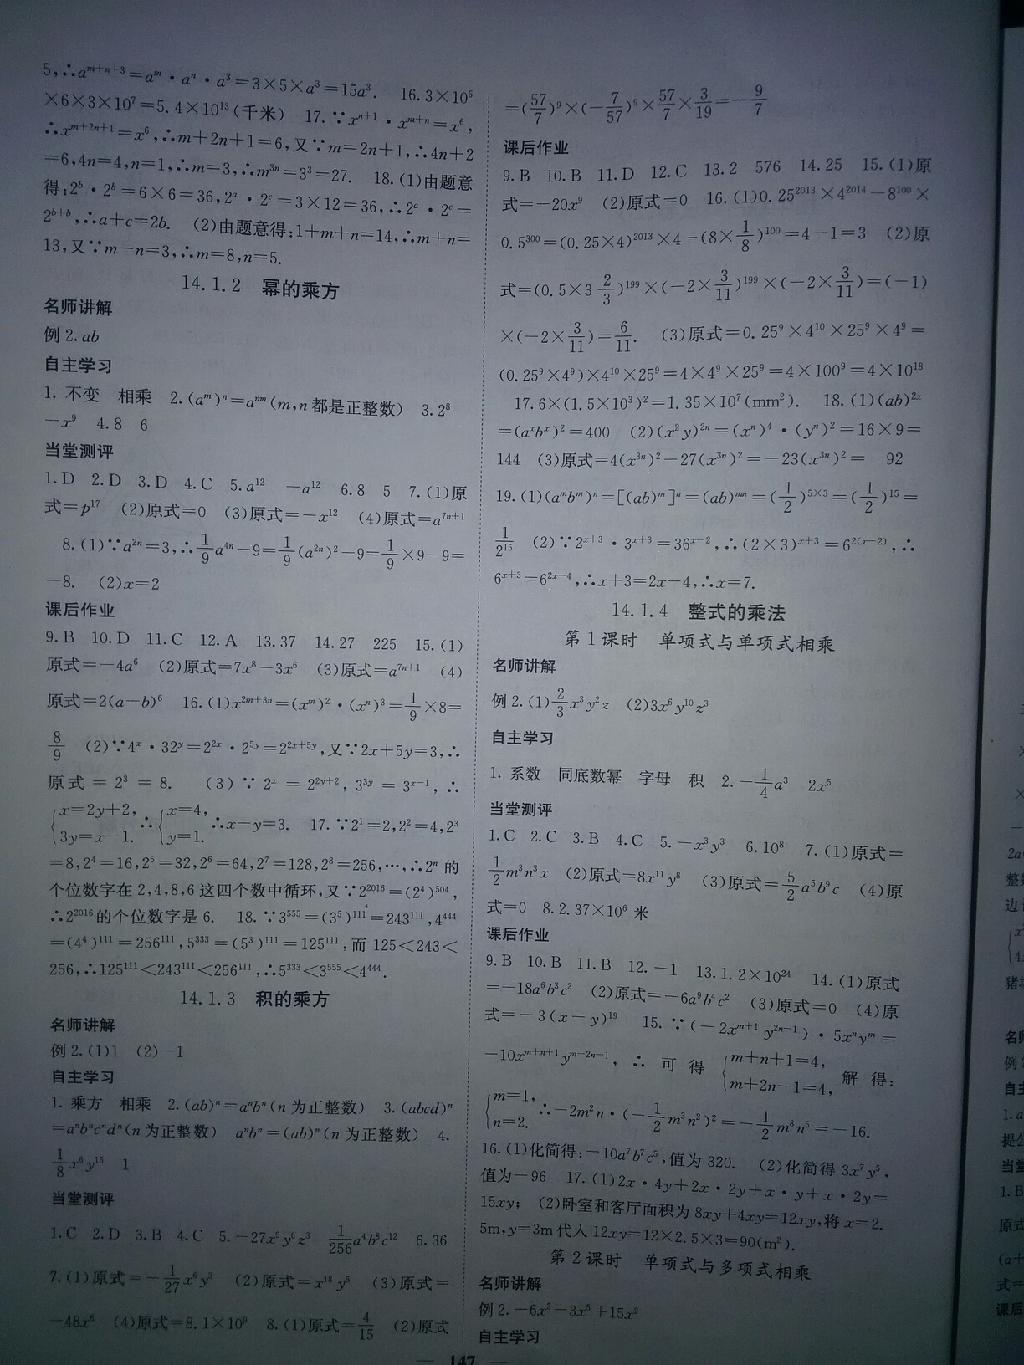 5,∴a^{m+n+3}=a^m·a^n·a^3=3×5×a^3=15a^3. 16.3×10^5
×6×3×10^7=5.4×10^{13}(千米) 17.∵x^{n+1}·x^{m+n}=x^6,
∴x^{m+2n+1}=x^6,∴m+2n+1=6,又∵m=2n+1,∴4n+2
=6,4n=4,n=1,∴m=3,∴m^{3n}=3^3=27. 18.(1)由题意
得:2^b·2^b=6×6=36,2^a·2^c=3×12=36,∴2^a·2^c=
2^{b+b},∴a+c=2b. (2)由题意得:1+m+n=14,∴m+n=
13,又∵m-n=3,∴m=8,n=5.
14.1.2 幂的乘方
名师讲解
例2.ab
自主学习
1. 不变 相乘 2.(a^m)^n=a^{nm}(m,n都是正整数) 3.2^8
-x^9 4.8 6
当堂测评
1.D 2.D 3.D 4.C 5.a^{12} -a^{12} 6.8 5 7.(1)原
式=p^{17} (2)原式=0 (3)原式=-x^{12} (4)原式=a^{7n+1}
8.(1)∵a^{2n}=3,∴1/9a^{4n}-9=1/9(a^{2n})^2-9=1/9×9-9=
-8. (2)x=2
课后作业
9.B 10.D 11.C 12.A 13.37 14.27 225 15.(1)
原式=-4a^6 (2)原式=7x^8-3x^6 (3)原式=a^{7n+1} (4)
原式=2(a-b)^6 16.(1)x^{2m+3n}=(x^m)^2·(x^n)^3=1/9×8=
8/9 (2)∵4^x·32^y=2^{2x}·2^{5y}=2^{2x+5y},又∵2x+5y=3,∴
原式=2^3=8. (3)∵2^x=2^{2y+2},3^{3y}=3^{x-1},∴
{x=2y+2, 3y=x-1. ∴{x=4, y=1. ∴x-y=3. 17.∵2^1=2,2^2=4,2^3
=8,2^4=16,2^5=32,2^6=64,2^7=128,2^8=256,…,∴2^n的
个位数字在2,4,8,6这四个数中循环,又∵2^{2016}=(2^4)^{504},
∴2^{2016}的个位数字是6. 18.∵3^{555}=(3^5)^{111}=243^{111},4^{444}
=(4^4)^{111}=256^{111},5^{333}=(5^3)^{111}=125^{111},而125<243<
256,∴125^{111}<243^{111}<256^{111},∴5^{333}<3^{555}<4^{444}.
14.1.3 积的乘方
名师讲解
例2.(1)1 (2)-1
自主学习
1. 乘方 相乘 2.(ab)^n=a^nb^n(n为正整数) 3.(abcd)^n
=a^nb^nc^nd^n(n为正整数) a^nb^n=(ab)^n(n为正整数) 4.
1/8x^6y^{15} 1
当堂测评
1.C 2.D 3.B 4.C 5.-27x^6y^6z^3 1/256a^4b^8c^{12} 6.36
7.(1)原式=-1/27x^6y^3 (2)原式=x^{18}y^6 (3)原式=
-48x^6 (4)原式=8.1×10^9 8.(1)原式=4/15 (2)原式
=(57/7)^9×(-7/57)^9×57/7×3/19=-9/7
课后作业
9.B 10.B 11.D 12.C 13.2 576 14.25 15.(1)原
式=-20x^9 (2)原式=0 16.(1)0.25^{2013}×4^{2014}-8^{100}×
0.5^{300}=(0.25×4)^{2013}×4-(8×1/8)^{100}=4-1=3 (2)原
式=(0.5×3 2/3)^{199}×(-2×3/11)^{199}×(-2×3/11)=(-1)
×(-2×3/11)=6/11. (3)原式=0.25^9×4^{10}×25^9×4^9=
(0.25^9×4^9)×4^{10}×25^9=4×4^9×25^9=4×100^9=4×10^{18}
17.6×(1.5×10^3)^2=1.35×10^7(mm^2). 18.(1)(ab)^{2x}
=(a^xb^x)^2=400 (2)(x^2y)^{2n}=(x^n)^4·(y^n)^2=16×9=
144 (3)原式=4(x^{3n})^2-27(x^{3n})^2=-23(x^{3n})^2=-92
19.(1)(a^nb^m)^n=[(ab)^m]^n=(ab)^{mn}=(1/2)^{5×3}=(1/2)^{15}=
1/2^{15} (2)∵2^{x+3}·3^{x+3}=36^{x-2},∴(2×3)^{x+3}=6^{2(x-2)},∴
6^{x+3}=6^{2x-4},∴x+3=2x-4,∴x=7.
14.1.4 整式的乘法
第1课时 单项式与单项式相乘
名师讲解
例2.(1)2/3x^3y^2z (2)3x^6y^{10}z^3
自主学习
1. 系数 同底数幂 字母 积 2.-1/4a^3 2x^5
当堂测评
1.C 2.C 3.B 4.C 5.-x^3y^3 6.10^8 7.(1)原式=
1/2m^3n^3x (2)原式=8x^{11}y^8 (3)原式=5/2a^5b^9c (4)原
式=0 8.2.37×10^6米
课后作业
9.B 10.B 11.B 12.-1 13.1.2×10^{24} 14.(1)原式
=-18a^6b^3c^2 (2)原式=-6a^9b^6c^2 (3)原式=0 (4)原
式=-3(x-y)^{19} 15.∵(-2x^{m+1}y^{2n-1})·5x^ny^m=
-10x^{m+n+1}y^{m+2n-1},∴可得{m+n+1=4, m+2n-1=4, 解得:
{m=1, n=2. ∴-2m^2n·(-1/2m^3n^2)^2=-1/2m^8n^5=-16.
16.(1)化简得:-10a^7b^7c^5,值为320. (2)化简得3x^7y^5,
值为-96 17.(1)2x·4y+2x·2y+x·y+x·2y=
15xy; (2)卧室和客厅面积为8xy+4xy=12xy,将x=2.
5m,y=3m代入12xy=12×2.5×3=90(m^2).
第2课时 单项式与多项式相乘
名师讲解
例2.-6x^5-3x^3+15x^2
自主学习
— 147 —